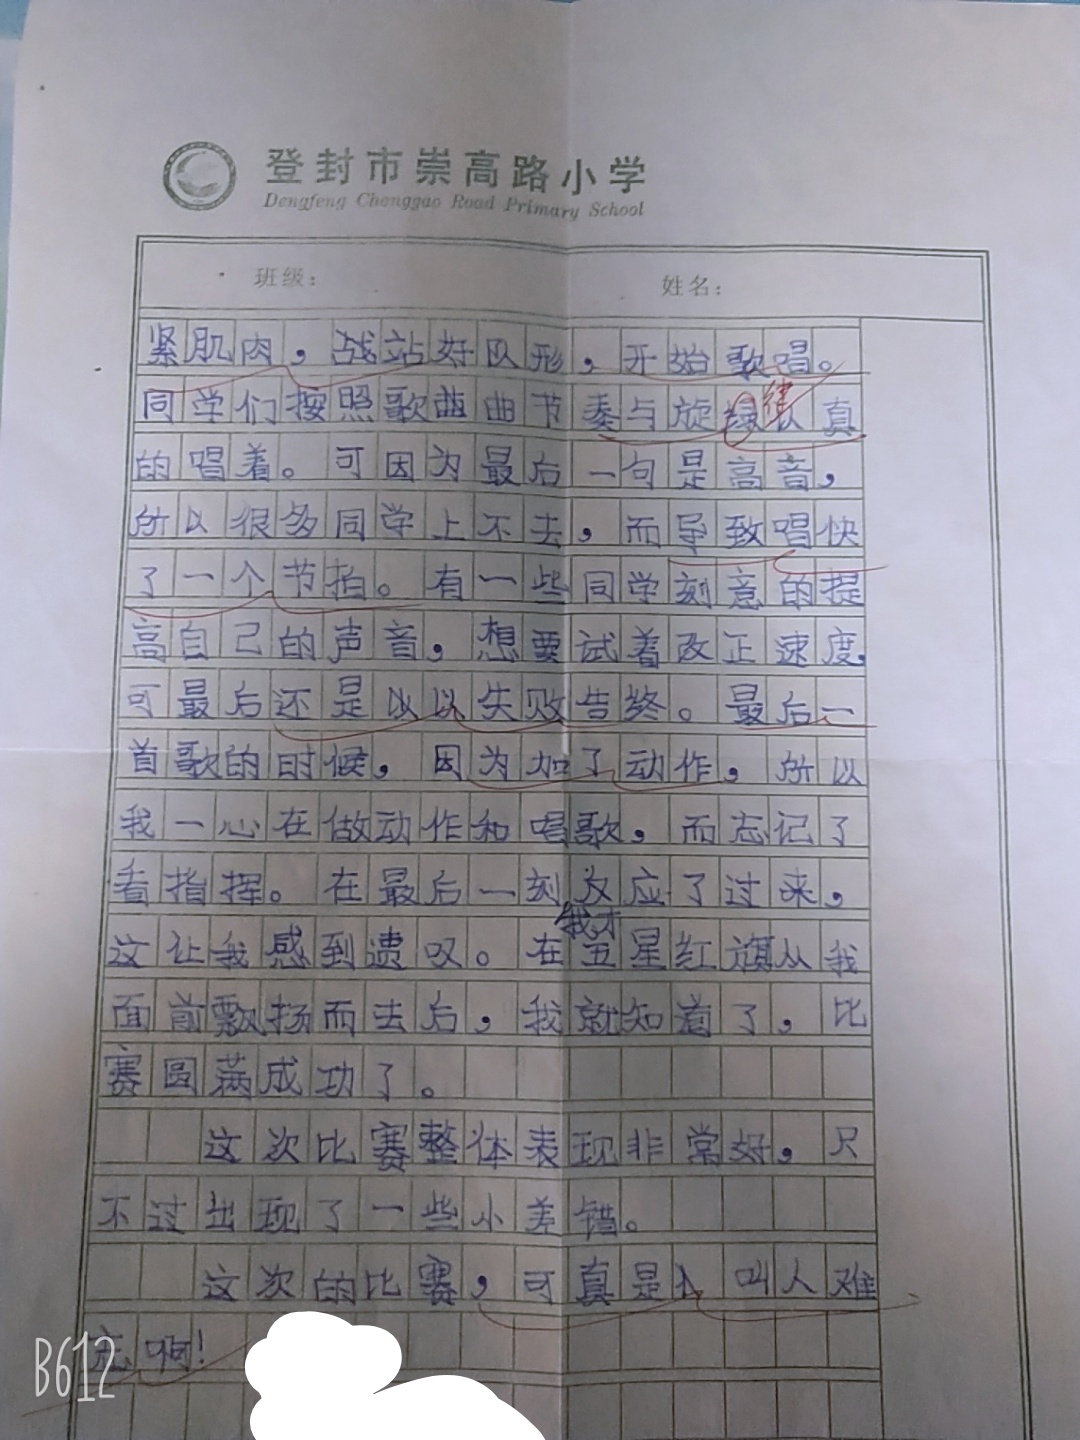 登封市崇高路小学
Dengfeng Chonggao Road Primary School
班级： 姓名：
紧肌肉，战站好队形，开始歌唱。
同学们按照歌曲曲节奏与旋绿律认真
的唱着。可因为最后一句是高音，
所以很多同学上不去，而导致唱快
了一个节拍。有一些同学刻意的提
高自己的声音，想要试着改正速度，
可最后还是以以失败告终。最后一
首歌的时候，因为加了动作，所以
我一心在做动作和唱歌，而忘记了
看指挥。在最后一刻我才反应了过来，
这让我感到遗叹。在五星红旗从我
面前飘扬而去后，我就知道了，比
赛圆满成功了。
这次比赛整体表现非常好，只
不过出现了一些小差错。
这次的比赛，可真是 叫人难
忘啊！
B612